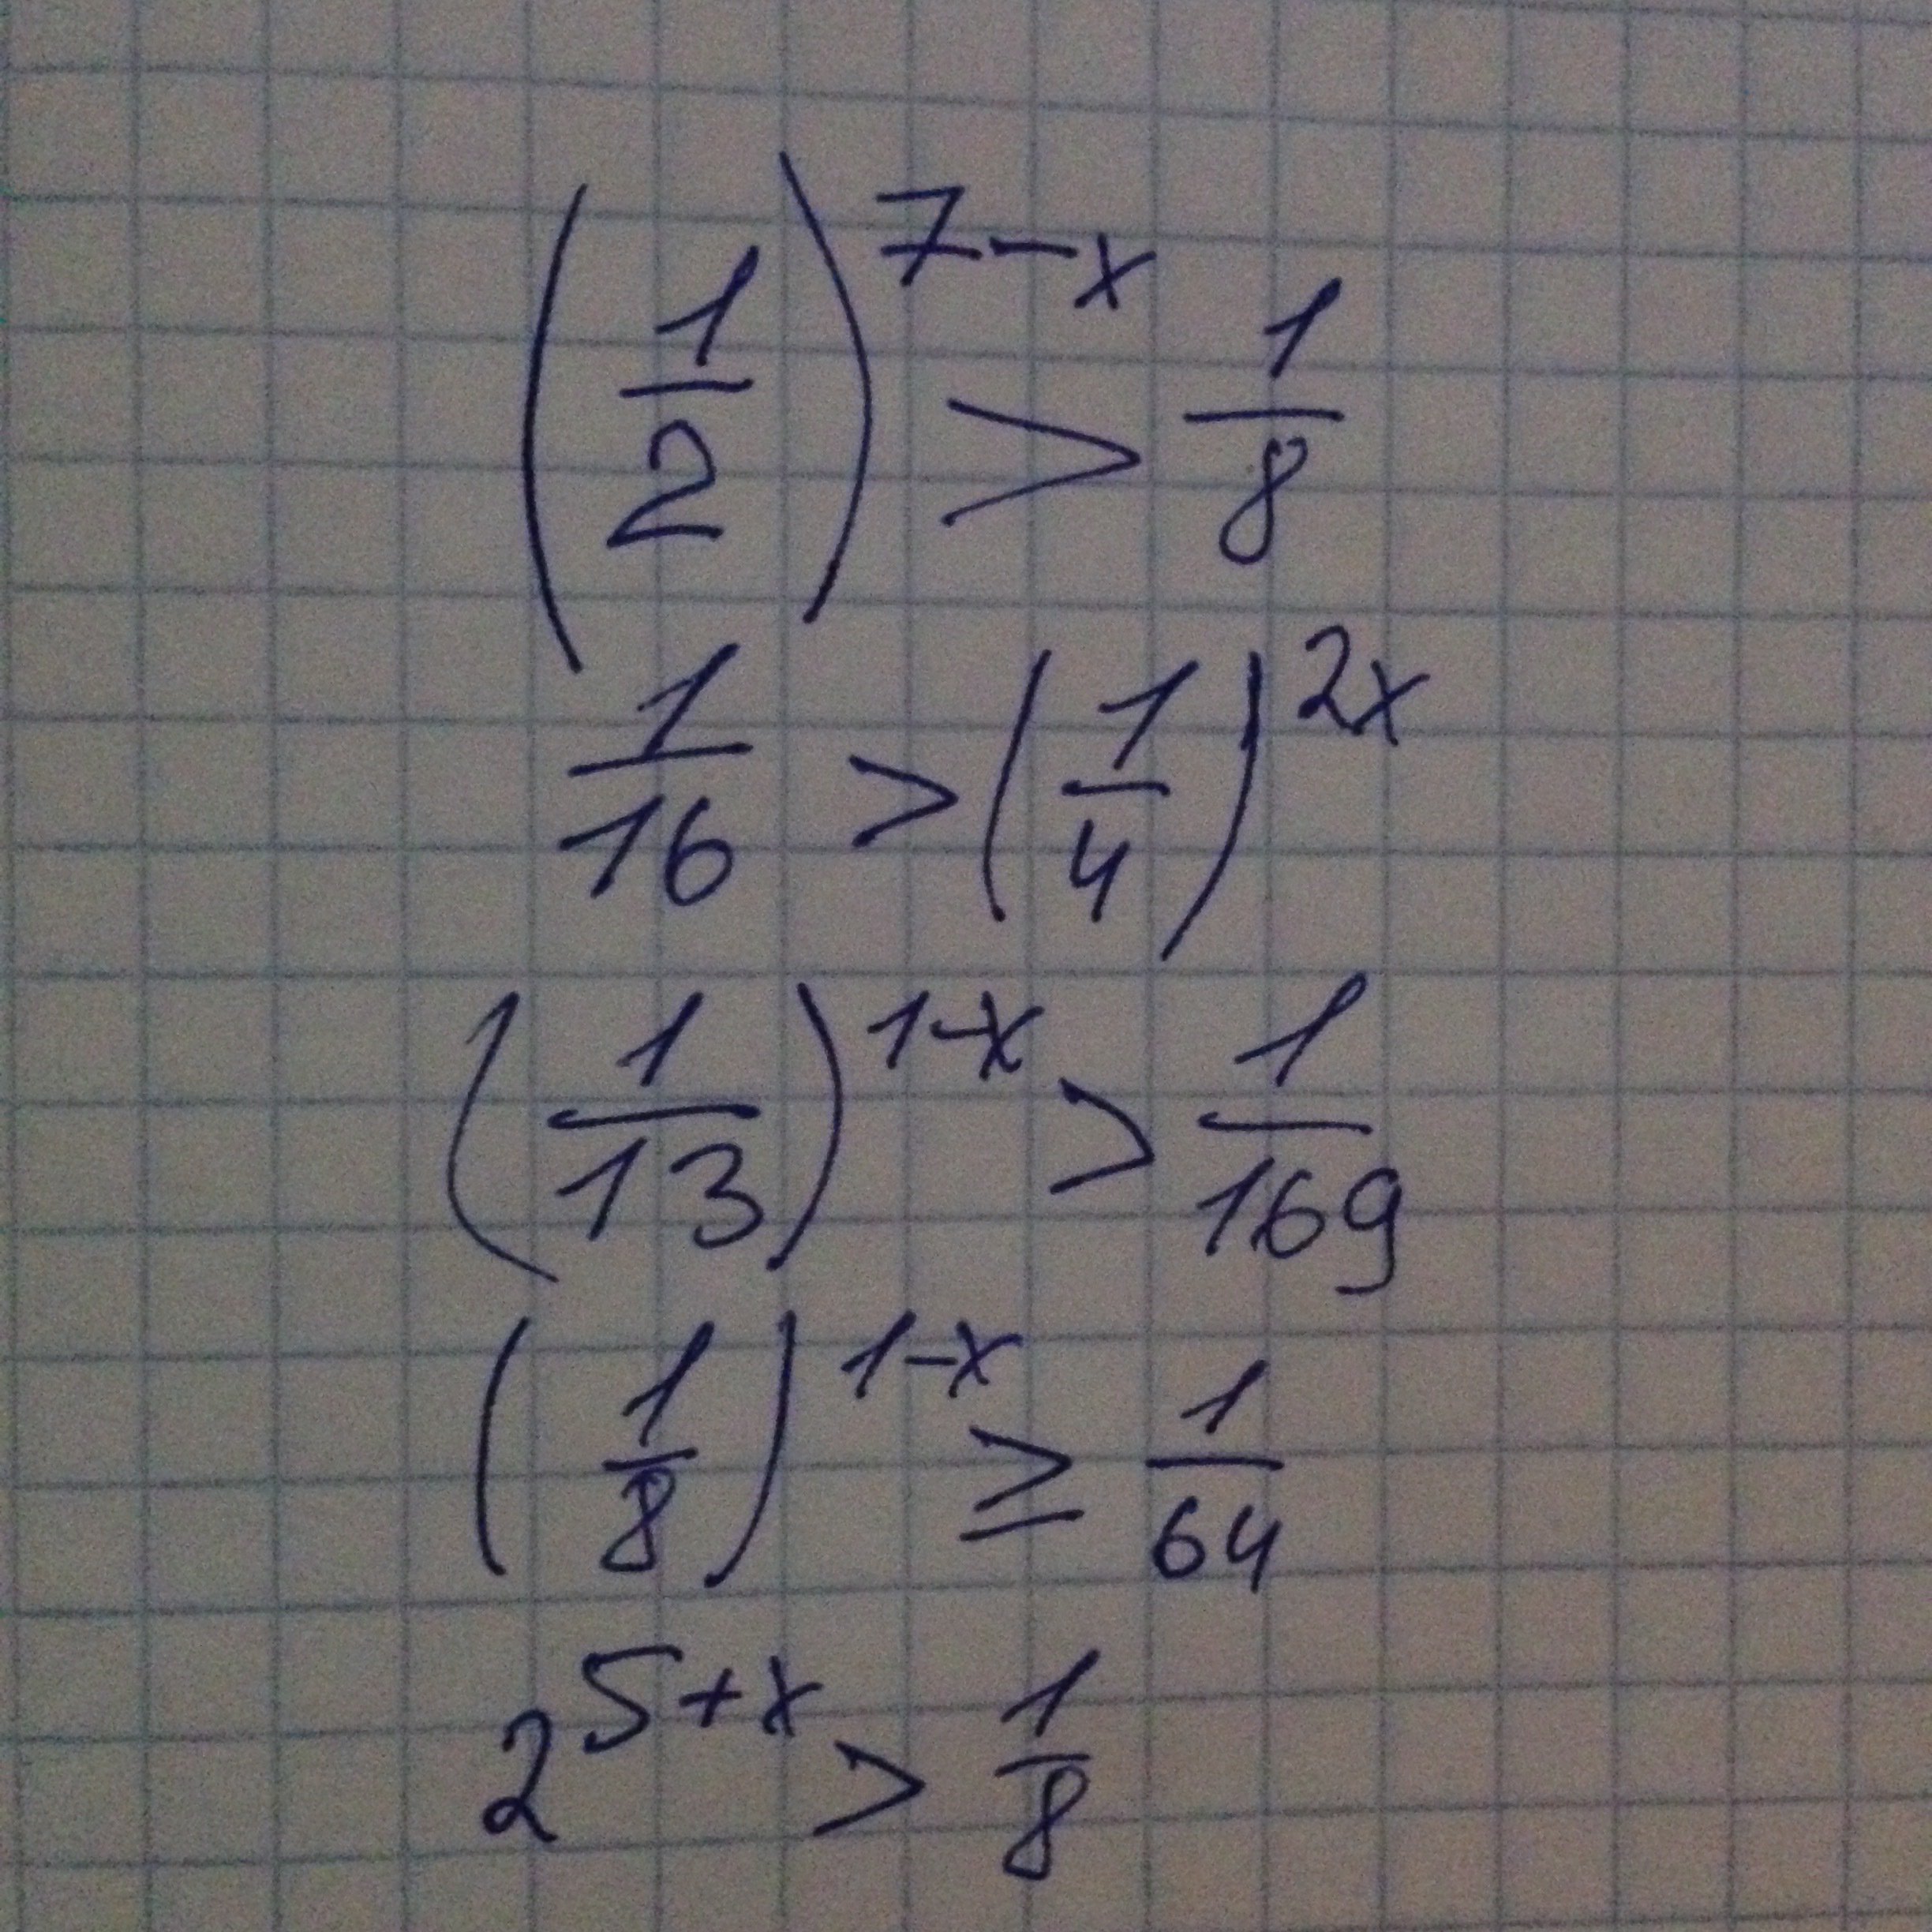 (1/2)^(7-x) > 1/8
1/16 > (1/4)^(2x)
(1/13)^(1-x) > 1/169
(1/8)^(1-x) ≥ 1/64
2^(5+x) > 1/8